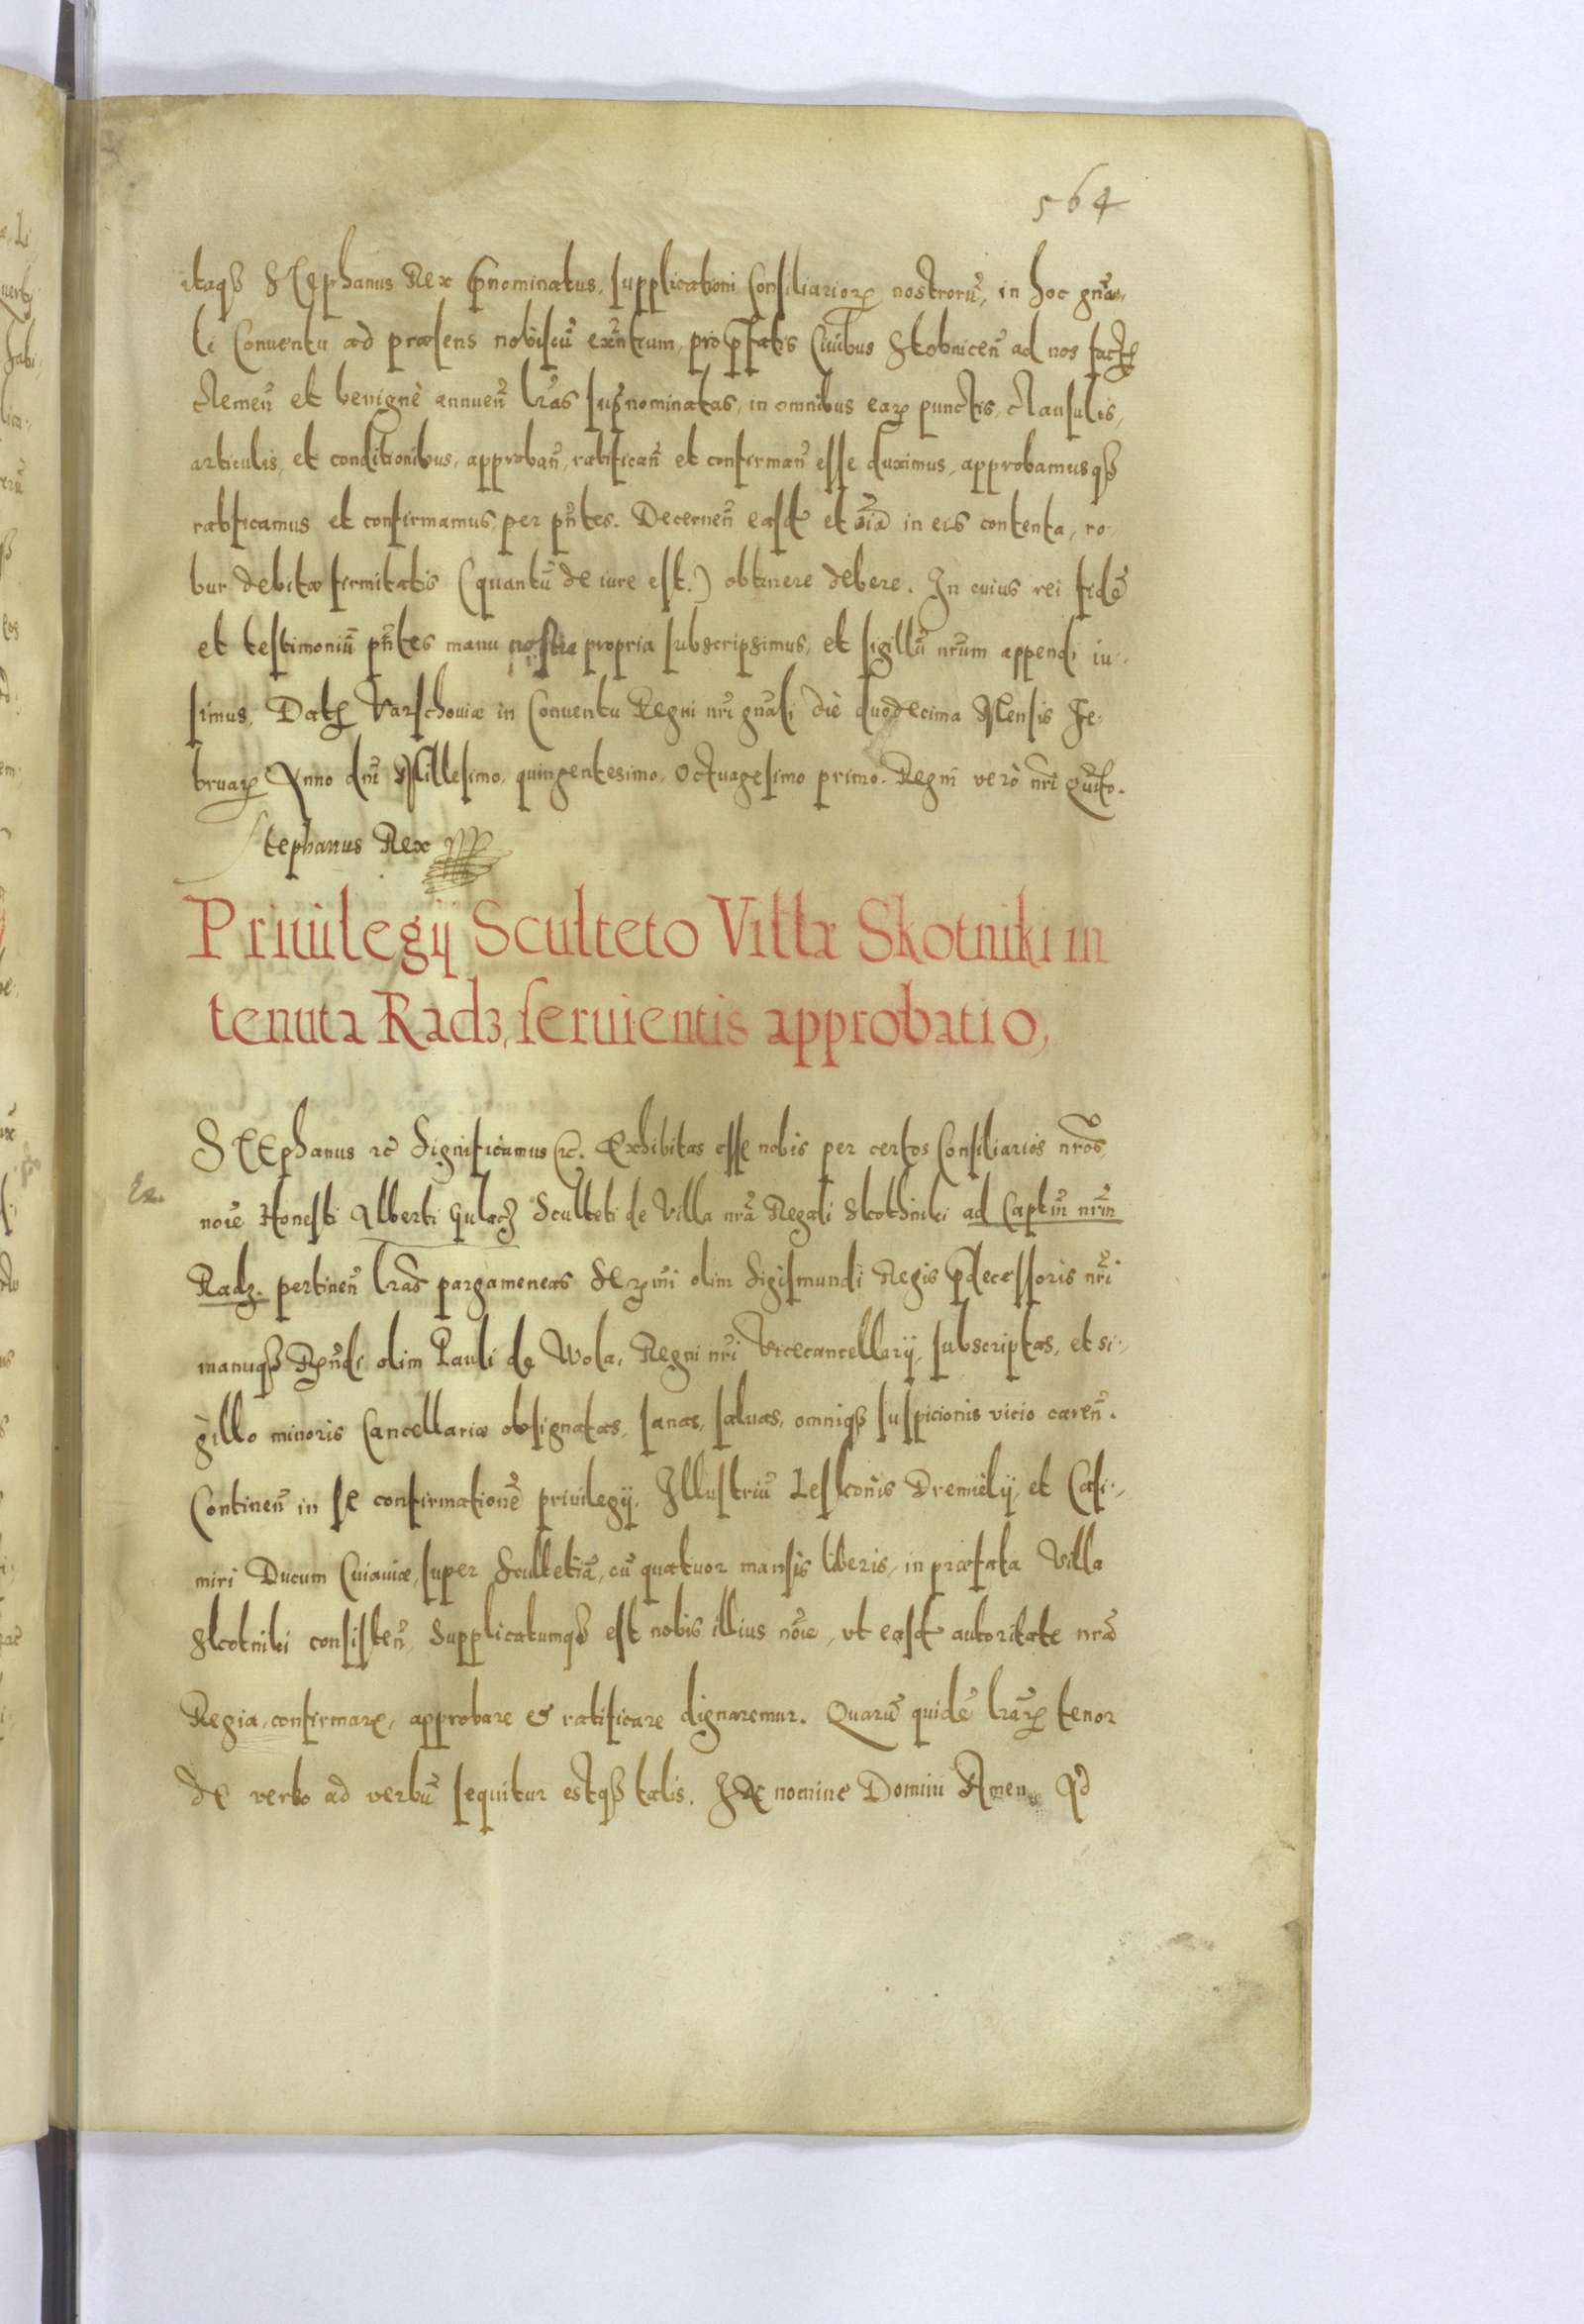 564
itaqз Stephanus Rex p̃nominatus, supplicationi Consiliarioꝝ nostrorũ, in hoc gñra-
li Conuentu ad præsens nobiscũ exñtium, pro p̃fatis Ciuibus Stobnicen̄ ad nos factæ
clemen̄ et benignè annuen̄ lr̃as sup̃nominatas, in omnibus eaꝝ punctis, clausulis,
articulis, et conditionibus, approban̄, ratifican̄ et confirman̄ esse duximus, approbamusqз
ratificamus et confirmamus per pñtes. Decernen̄ easd et oĩa in eis contenta, ro-
bur debitæ firmitatis (quantũ de iure est.) obtinere debere. In cuius rei fidẽ
et testimoniũ pñtes manu nostra propria subscripsimus, et sigillũ nr̃um appendi ius-
simus, Datȩ Varschouiæ in Conuentu Regni nr̃i gñali diè duodecima Mensis Fe-
bruaꝝ Anno dñi Millesimo, quingentesimo, Octuagesimo primo. Regni verò nr̃i Quĩto.
Stephanus Rex
Priuilegij Sculteto Villæ Skotniki in
tenuta Radz, seruientis approbatio,
Stephanus rc̃ Significamus rc̃. Exhibitas esse nobis per certos Consiliarios nr̃os,
noĩe Honesti Alberti Gulacz Sculteti de Villa nr̃a Regali Skothniki ad Capt̃m nr̃m
Radz. pertinen̄ lr̃as pargameneas Serm̃i olim Sigismundi Regis p̃decessoris nr̃i
manuqз Rñdi olim Pauli de Wola, Regni nr̃i Vicecancellarij, subscriptas, et si-
gillo minoris Cancellariæ obsignatas, sanas, saluas, omniqз suspicionis vicio caren̄.
Continen̄ in se confirmationẽ priuilegij, Illustriũ Lesthconis Dremielij, et Casi-
miri Ducum Cuiauiæ, super Scultetiã, cũ quatuor mansis liberis, in præfata Villa
Skotniki consisten̄, Supplicatumqз est nobis illius noĩe, vt easd autoritate nr̃a
Regia, confirmare, approbare & ratificare dignaremur. Quarũ quidẽ lr̃aꝝ tenor
de verbo ad verbũ sequitur estqз talis. In nomine Domini Amen. Ad